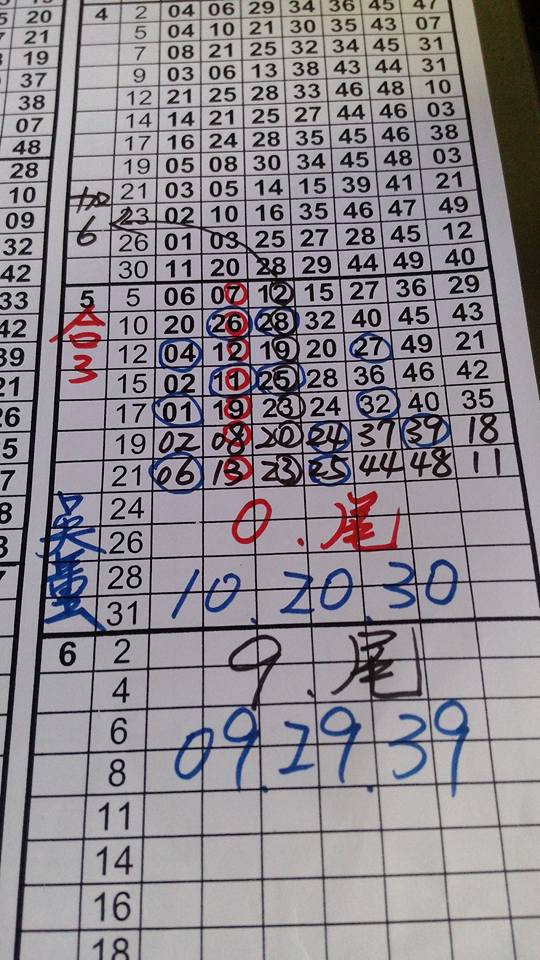 20
21
19
37
38
07
48
28
10
09
32
42
33
42
39
21
26
5
7
8
3
7
4 2 04 06 29 34 36 45 47
5 04 10 21 30 35 43 07
7 08 21 25 32 34 45 31
9 03 06 13 38 43 44 31
12 21 25 28 33 46 48 10
14 14 21 25 27 44 46 03
17 16 24 28 35 45 46 38
19 05 08 30 34 45 48 03
21 03 05 14 15 39 41 21
加 23 02 10 16 35 46 47 49
6 26 01 03 25 27 28 45 12
30 11 20 28 29 44 49 40
5 5 06 07 12 15 27 36 29
合 10 20 26 28 32 40 45 43
3 12 04 12 19 20 27 49 21
15 02 11 25 28 36 46 42
17 01 19 23 24 32 40 35
19 02 08 20 24 37 39 18
21 06 13 23 25 44 48 11
吳 24
26 0.尾
28
31 10.20.30
6 2 9.尾
4
6 09.29.39
8
11
14
16
18